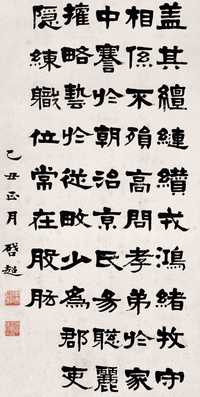 盖其繵縺纘戎鴻緒牧守
相係不殞高問孝弟於家
中謇於朝治京氏易聦麗
權略藝於從畋少為郡吏
隱練職位常在股肱
乙丑正月 啓超